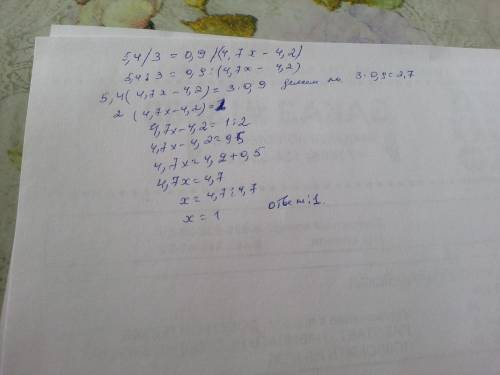 5,4/3 = 0,9/(4,7x - 4,2)
5,4:3 = 0,9:(4,7x - 4,2)
5,4(4,7x - 4,2) = 3·0,9 делим на 3·0,9=2,7
2 (4,7x-4,2)=1
4,7x-4,2= 1:2
4,7x-4,2=0,5
4,7x= 4,2+0,5
4,7x=4,7
x= 4,7:4,7
x= 1 ответ: 1.